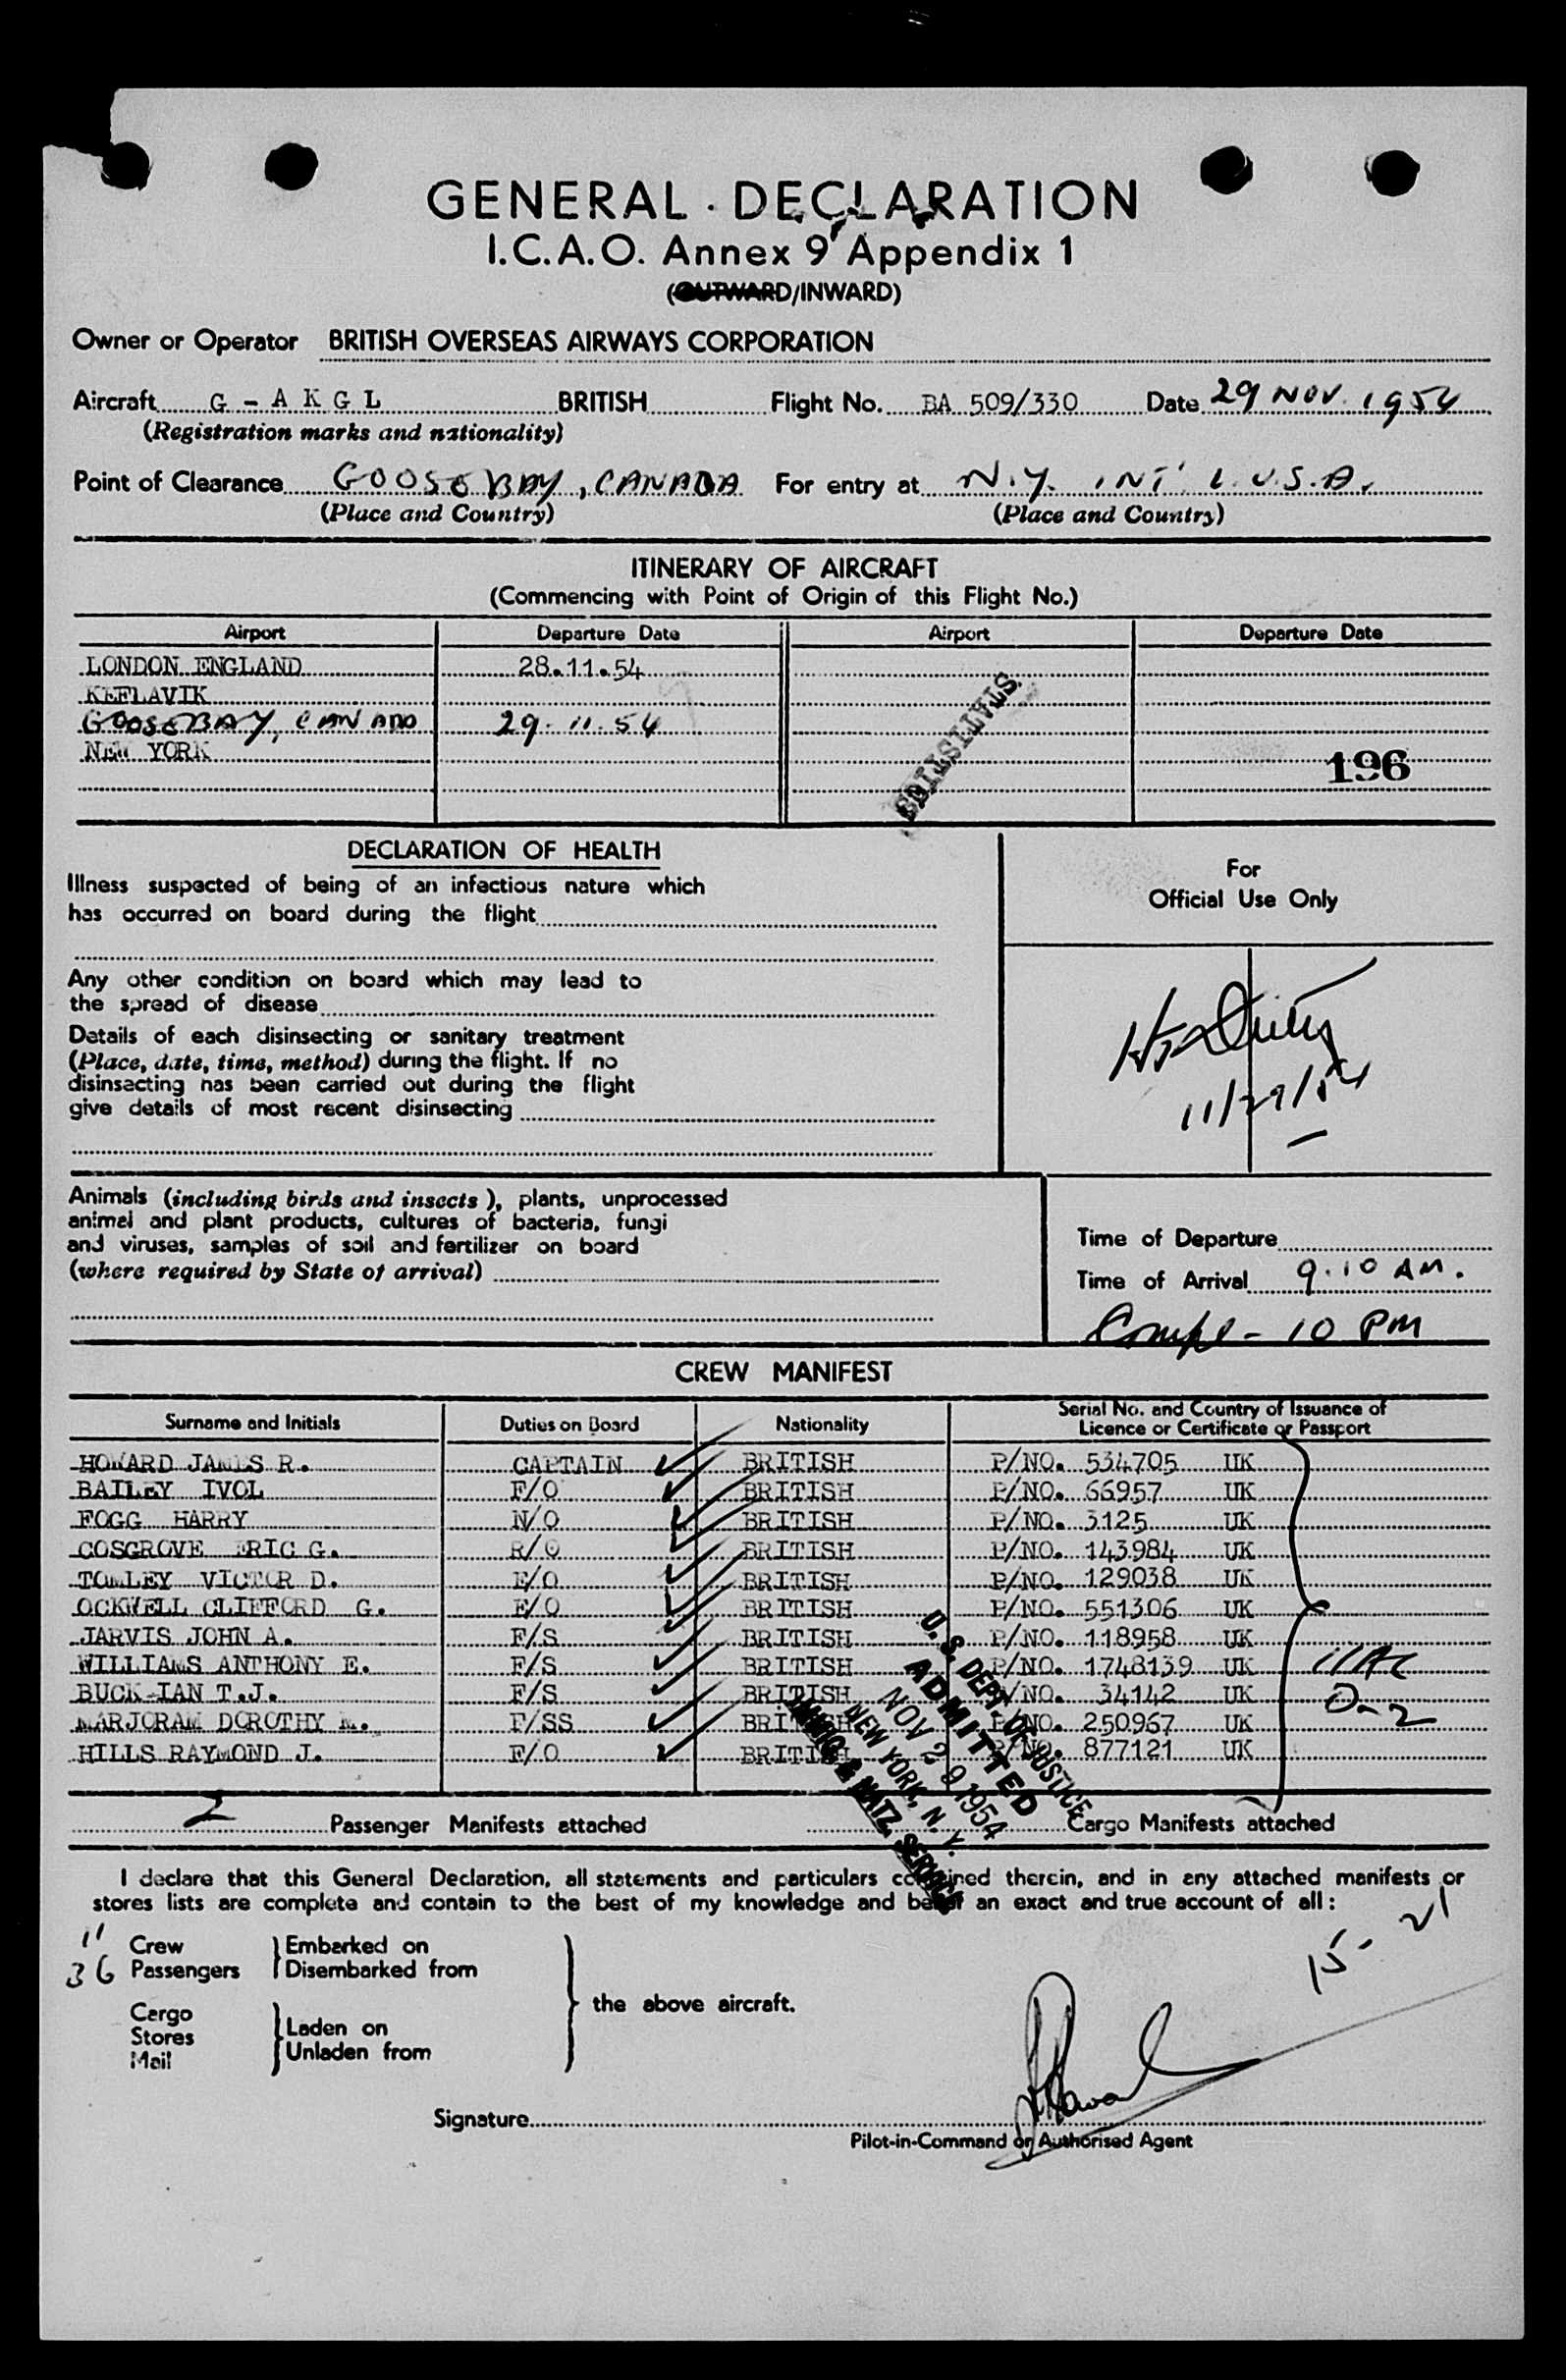 GENERAL · DECLARATION
I.C.A.O. Annex 9 Appendix 1
(OUTWARD/INWARD)
Owner or Operator BRITISH OVERSEAS AIRWAYS CORPORATION
Aircraft G - A K G L BRITISH Flight No. BA 509/330 Date 29 NOV. 1954
(Registration marks and nationality)
Point of Clearance GOOSE BAY, CANADA For entry at N.Y. INT'L U.S.A.
(Place and Country) (Place and Country)
ITINERARY OF AIRCRAFT
(Commencing with Point of Origin of this Flight No.)
Airport Departure Date Airport Departure Date
LONDON ENGLAND 28.11.54
KEFLAVIK
GOOSEBAY, CANADA 29.11.54
NEW YORK
STATISTICS
196
DECLARATION OF HEALTH
Illness suspected of being of an infectious nature which
has occurred on board during the flight
Any other condition on board which may lead to
the spread of disease
Details of each disinsecting or sanitary treatment
(Place, date, time, method) during the flight. If no
disinsecting has been carried out during the flight
give details of most recent disinsecting
For
Official Use Only
11/29/54
Animals (including birds and insects), plants, unprocessed
animal and plant products, cultures of bacteria, fungi
and viruses, samples of soil and fertilizer on board
(where required by State of arrival)
Time of Departure
Time of Arrival 9.10 AM.
Compl - 10 PM
CREW MANIFEST
Surname and Initials Duties on Board Nationality Serial No. and Country of Issuance of Licence or Certificate or Passport
HOWARD JAMES R. CAPTAIN BRITISH P/NO. 534705 UK
BAILEY IVOL F/O BRITISH P/NO. 66957 UK
FOGG HARRY N/O BRITISH P/NO. 3125 UK
COSGROVE ERIC G. R/O BRITISH P/NO. 143984 UK
TOWLEY VICTOR D. E/O BRITISH P/NO. 129038 UK
OCKWELL CLIFFORD G. E/O BRITISH P/NO. 551306 UK
JARVIS JOHN A. F/S BRITISH P/NO. 118958 UK
WILLIAMS ANTHONY E. F/S BRITISH P/NO. 1748139 UK
BUCK-IAN T.J. F/S BRITISH P/NO. 34142 UK
MARJORAM DOROTHY M. F/SS BRITISH P/NO. 250967 UK
HILLS RAYMOND J. F/O BRITISH P/NO. 877121 UK
D-2
U. S. DEPT. OF JUSTICE
ADMITTED
NOV 29 1954
NEW YORK, N. Y.
IMMIG & NATZ SERVICE
2 Passenger Manifests attached Cargo Manifests attached
I declare that this General Declaration, all statements and particulars contained therein, and in any attached manifests or
stores lists are complete and contain to the best of my knowledge and belief an exact and true account of all :
11 Crew
36 Passengers
Embarked on
Disembarked from
Cargo
Stores
Mail
Laden on
Unladen from
the above aircraft.
15- 21
Signature
Pilot-in-Command or Authorised Agent